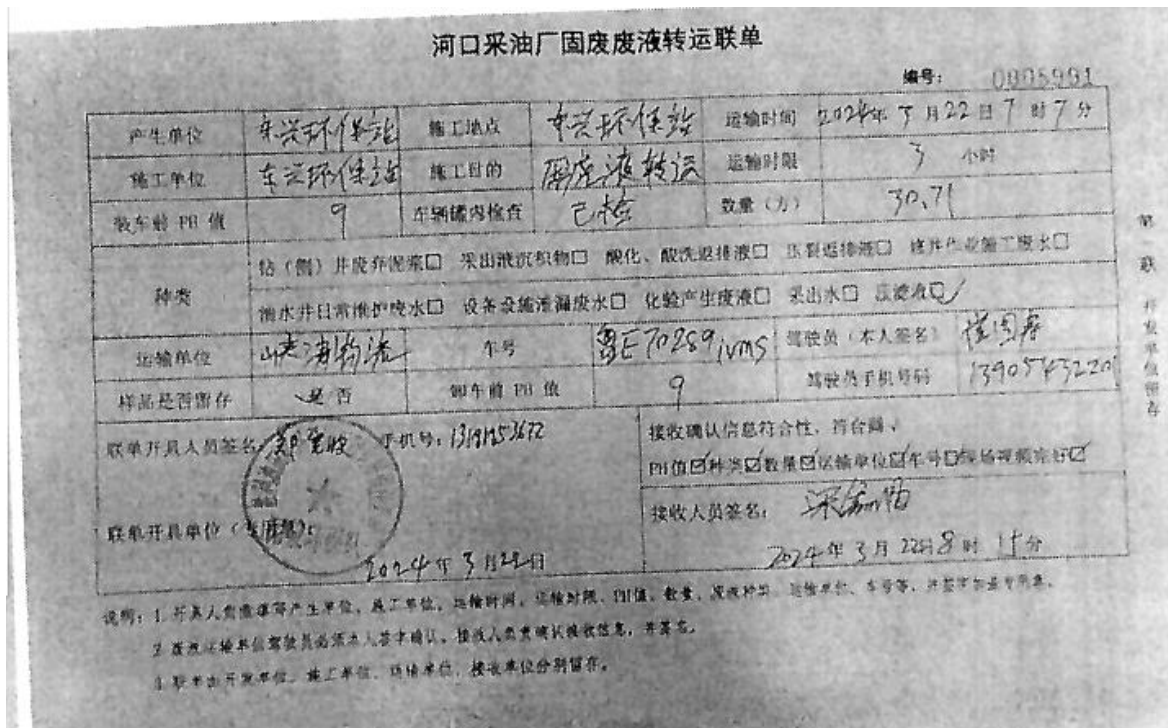 河口采油厂固废废液转运联单
编号: 0005991
产生单位 东兴环保站 施工地点 东兴环保站 运输时间 2024年 3月22日7时7分
施工单位 东兴环保站 施工目的 固废液转运 运输时限 3 小时
装车前 PH 值 9 车辆罐内检查 已检 数量(方) 30.71
种类
钻(侧)井废弃泥浆□ 采出液沉积物□ 酸化、酸洗返排液□ 压裂返排液□ 修井作业施工废水□
油水井日常维护废水□ 设备设施泄漏废水□ 化验产生废液□ 采出水□ 压滤液☑
运输单位 物流 车号 鲁E70289 ivms 驾驶员(本人签名)
样品是否留存 是 否 卸车前 PH 值 9 驾驶员手机号码
联单开具人员签名: 手机号:
接收确认信息符合性,符合画√
PH值☑种类☑数量☑运输单位☑车号☑现场视频完好☑
联单开具单位(专用章):
接收人员签名:
2024年3月22日
2024年3月22日8时11分
说明:1.开具人员应填写产生单位、施工单位、运输时间、运输时限、PH值、数量、废液种类、运输单位、车号等,并签字加盖专用章。
2.废液运输单位驾驶员必须本人签字确认,接收人负责确认接收信息,并签名。
3.联单由开发单位、施工单位、运输单位、接收单位分别留存。
第一联 开发单位留存